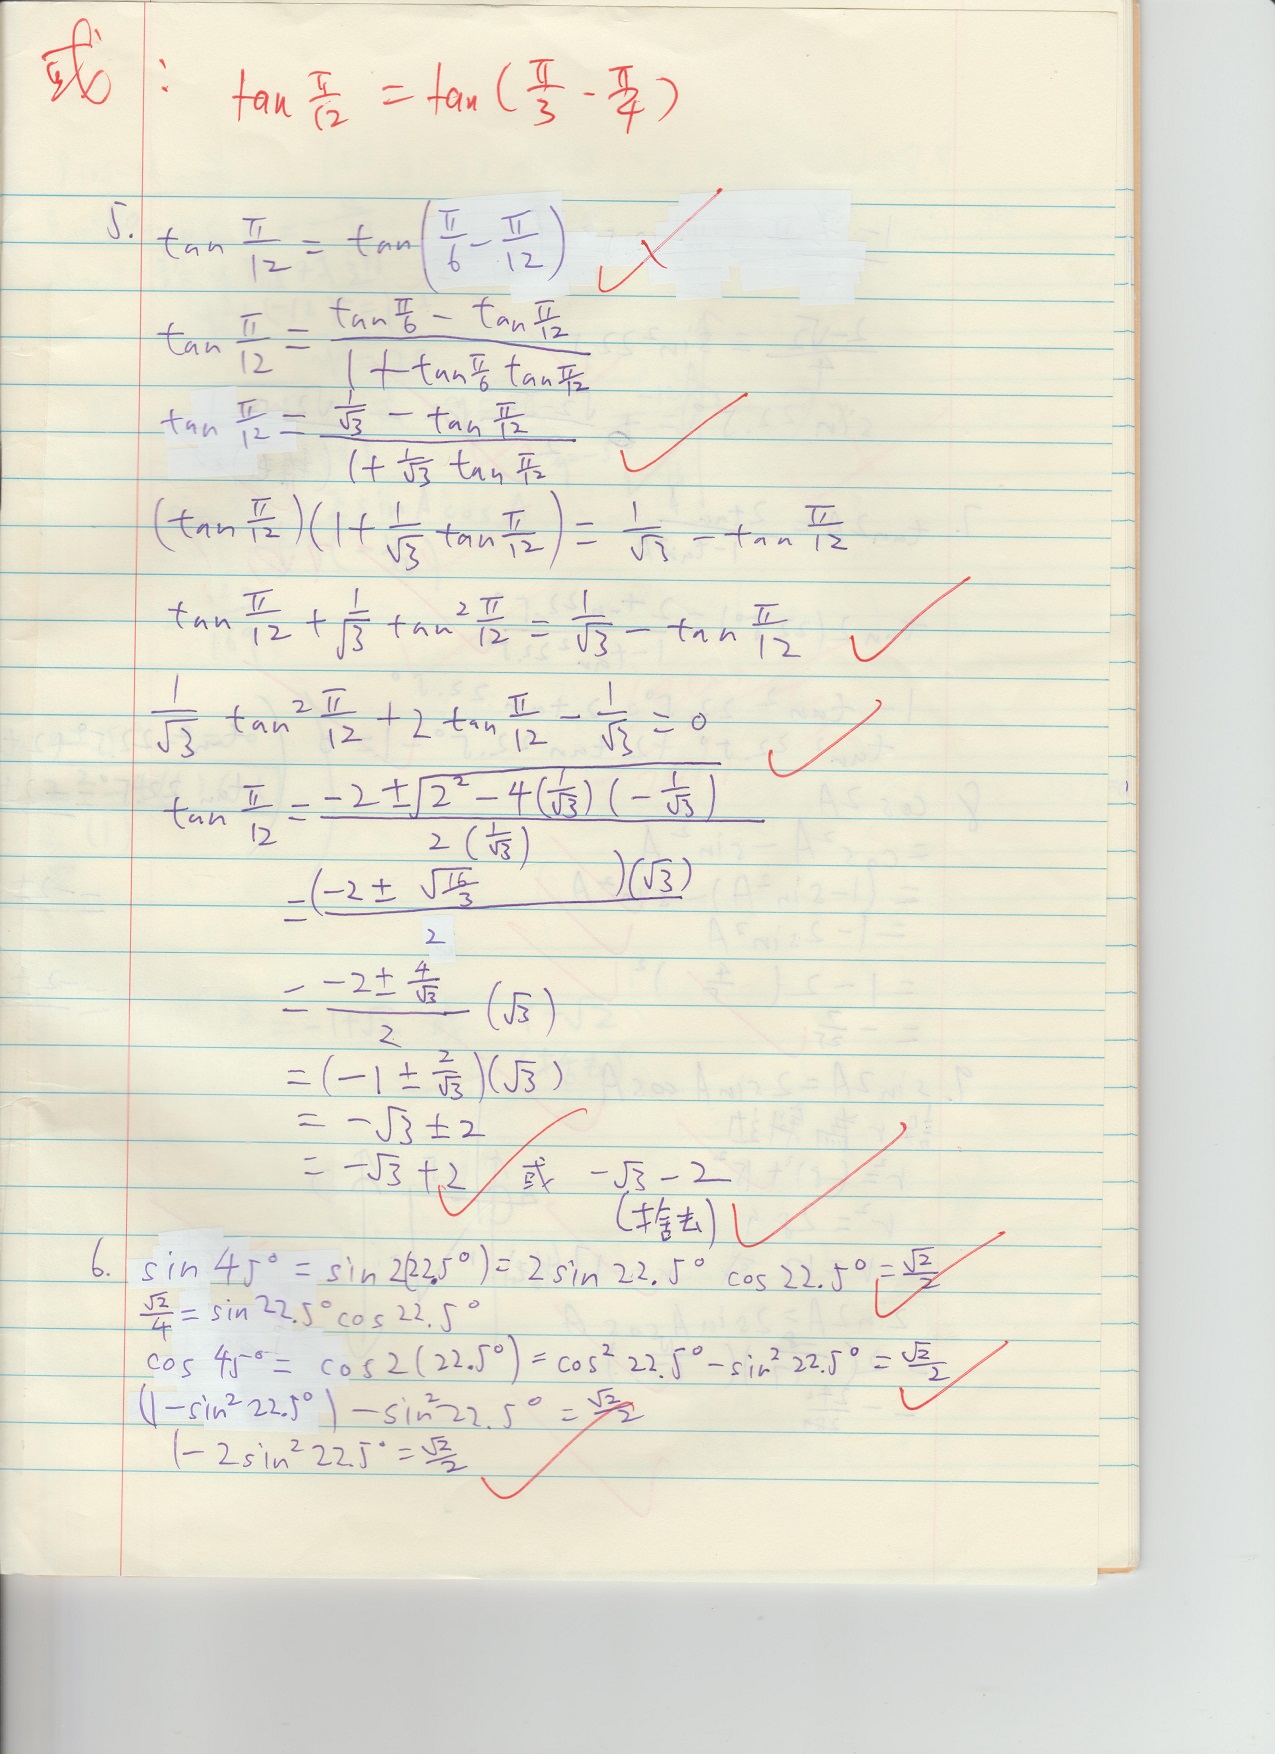 或: tan π/12 = tan(π/3 - π/4)
5. tan π/12 = tan(π/6 - π/12)
tan π/12 = (tan π/6 - tan π/12)/(1 + tan π/6 tan π/12)
tan π/12 = (1/√3 - tan π/12)/(1 + 1/√3 tan π/12)
(tan π/12)(1 + 1/√3 tan π/12) = 1/√3 - tan π/12
tan π/12 + 1/√3 tan² π/12 = 1/√3 - tan π/12
1/√3 tan² π/12 + 2 tan π/12 - 1/√3 = 0
tan π/12 = (-2 ± √(2² - 4(1/√3)(-1/√3)))/(2(1/√3))
= (-2 ± √(16/3))(√3)/2
= (-2 ± 4/√3)/2 (√3)
= (-1 ± 2/√3)(√3)
= -√3 ± 2
= -√3 + 2 或 -√3 - 2
(捨去)
6. sin 45° = sin 2(22.5°) = 2 sin 22.5° cos 22.5° = √2/2
√2/4 = sin 22.5° cos 22.5°
cos 45° = cos 2(22.5°) = cos² 22.5° - sin² 22.5° = √2/2
(1 - sin² 22.5°) - sin² 22.5° = √2/2
1 - 2 sin² 22.5° = √2/2